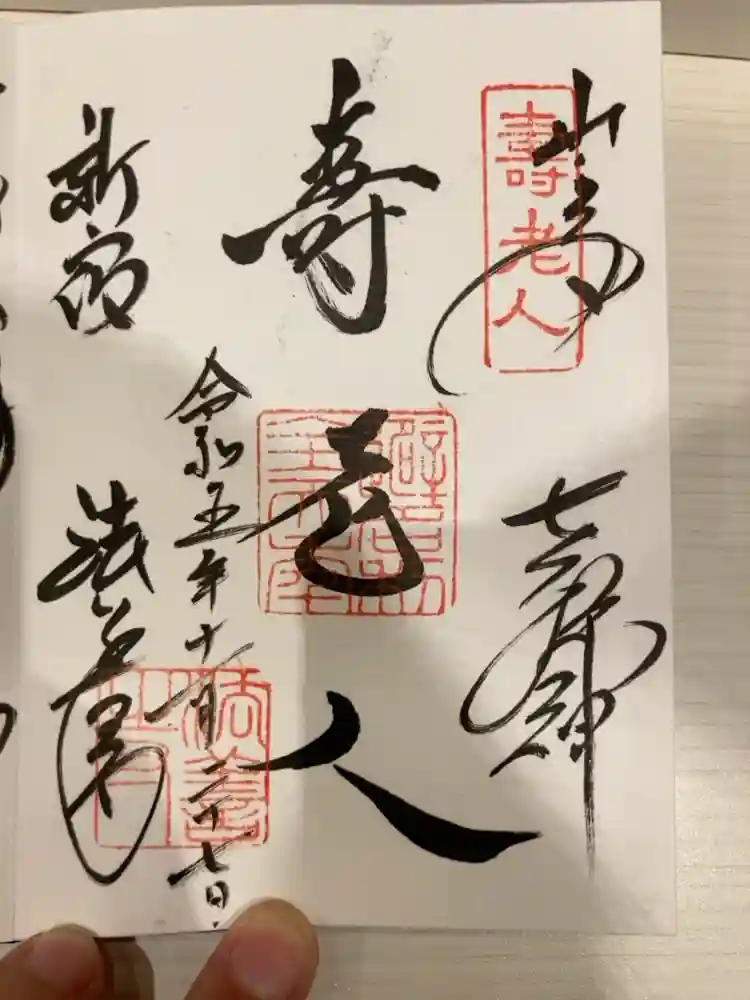 山の手 七福神
壽老人
寿老人
令和五年十一月二十七日
新宿 法善寺